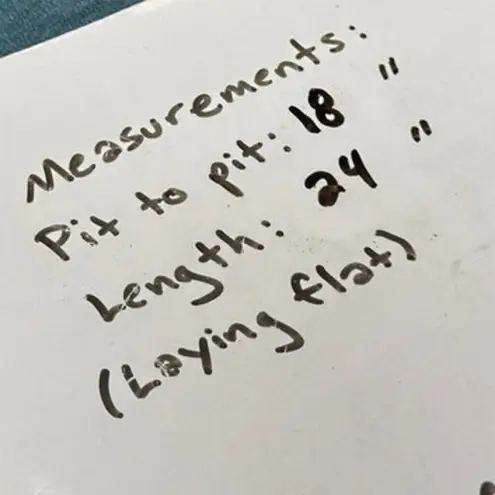 Measurements:
Pit to pit: 18 "
Length: 24 "
(Laying flat)